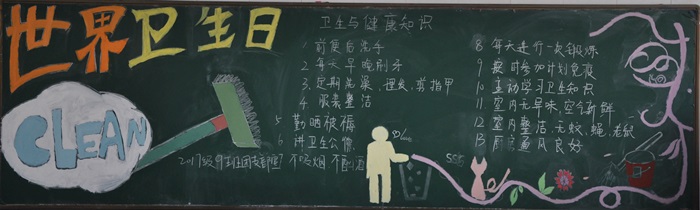 世界卫生日
CLEAN
卫生与健康知识
1 前便后洗手
2 每天早晚刷牙
3 定期洗澡、理发、剪指甲
4 服装整洁
5 勤晒被褥
6 讲卫生公德
7 不吸烟 不酗酒
8 每天进行一次锻炼
9 按时参加计划免疫
10 主动学习卫生知识
11 室内无异味,空气新鲜
12 室内整洁,无蚊、蝇、老鼠
13 厨房通风良好
2017级9班团支部